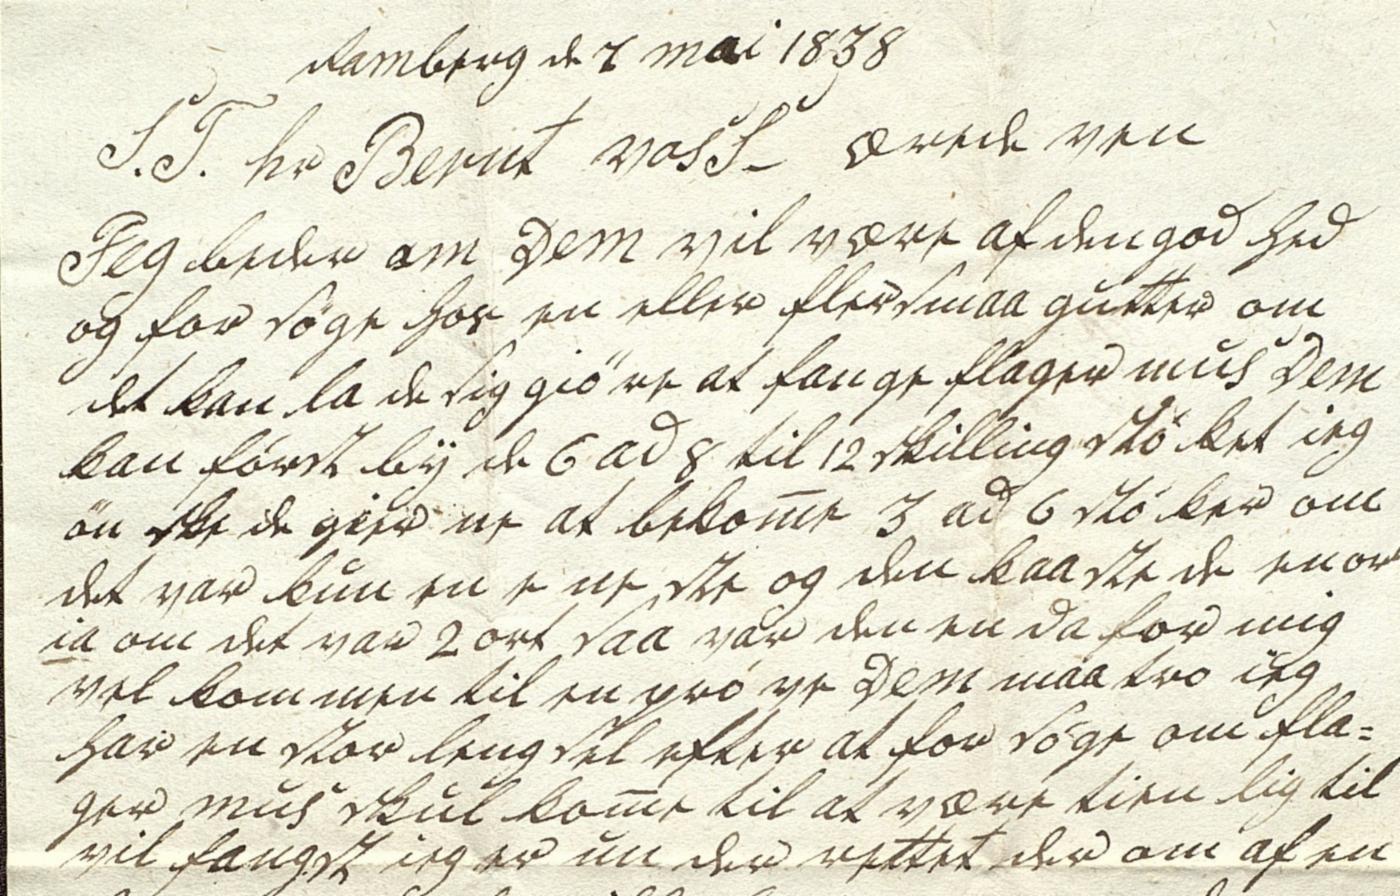 damberg de 7 mai 1838
S.T. hr Bernt vosS_ ærede ven
Jeg beder om Dem vil være af den god hed
og for söge hos en eller fler smaa gutter om
det kan la de sig giöre at fange flager mus Dem
kan först bÿ de 6 ad 8 til 12 skilling stö ket ieg
ön ske de gier ne at bekom̅e 3 ad 6 stö ker om
det var kun en e ne ste og den kaa ste de en or
ia om det var 2 ort saa var den en da for mig
vel kom men til en prö ve Dem maa tro ieg
har en stor leng sel efter at for söge om fla=
ger mus skul kom̅e til at være tien lig til
vil fangst ieg er un der rettet der om af en